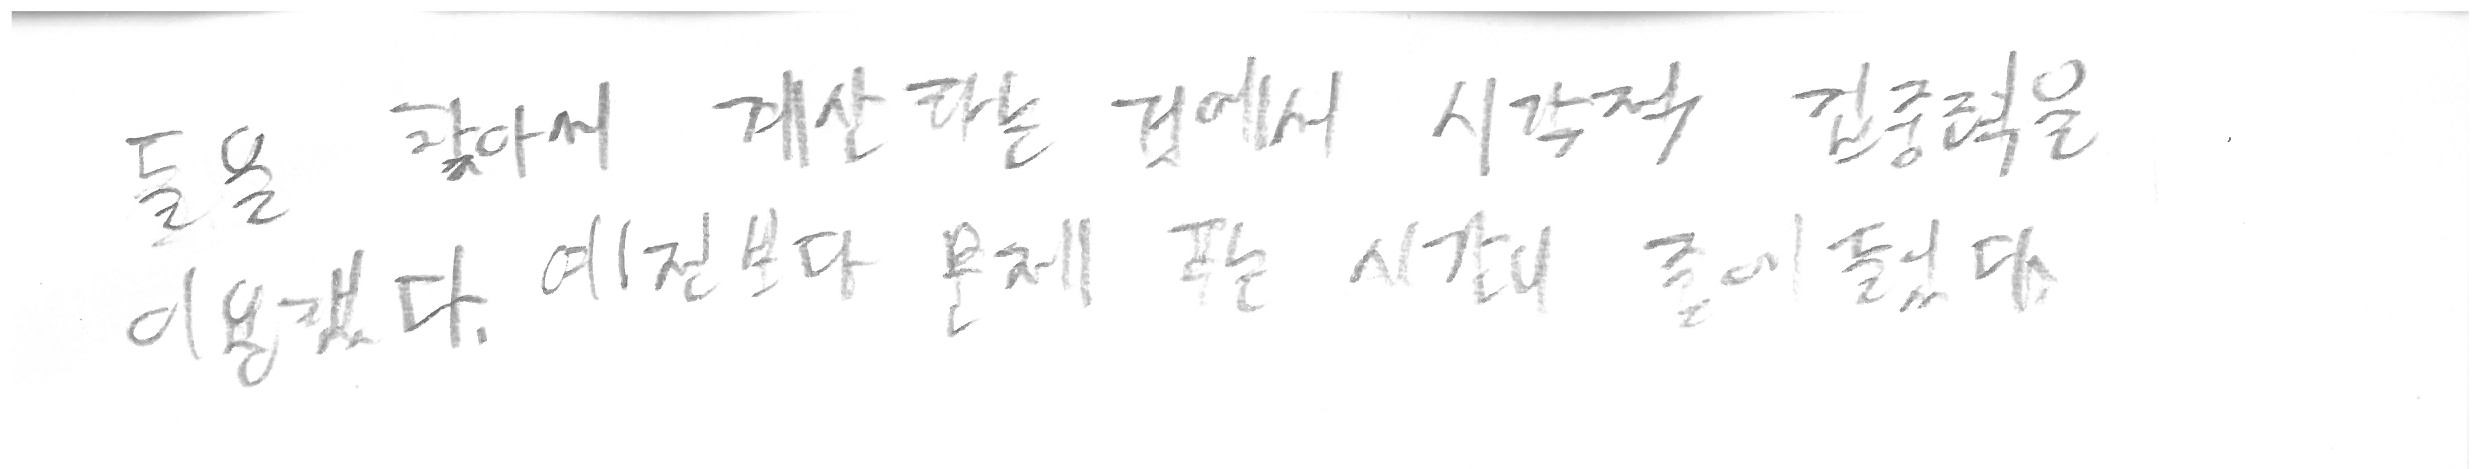 들을 찾아서 계산하는 것에서 시각적 집중력을
이용했다. 예전보다 문제 푸는 시간이 줄어 들었다.